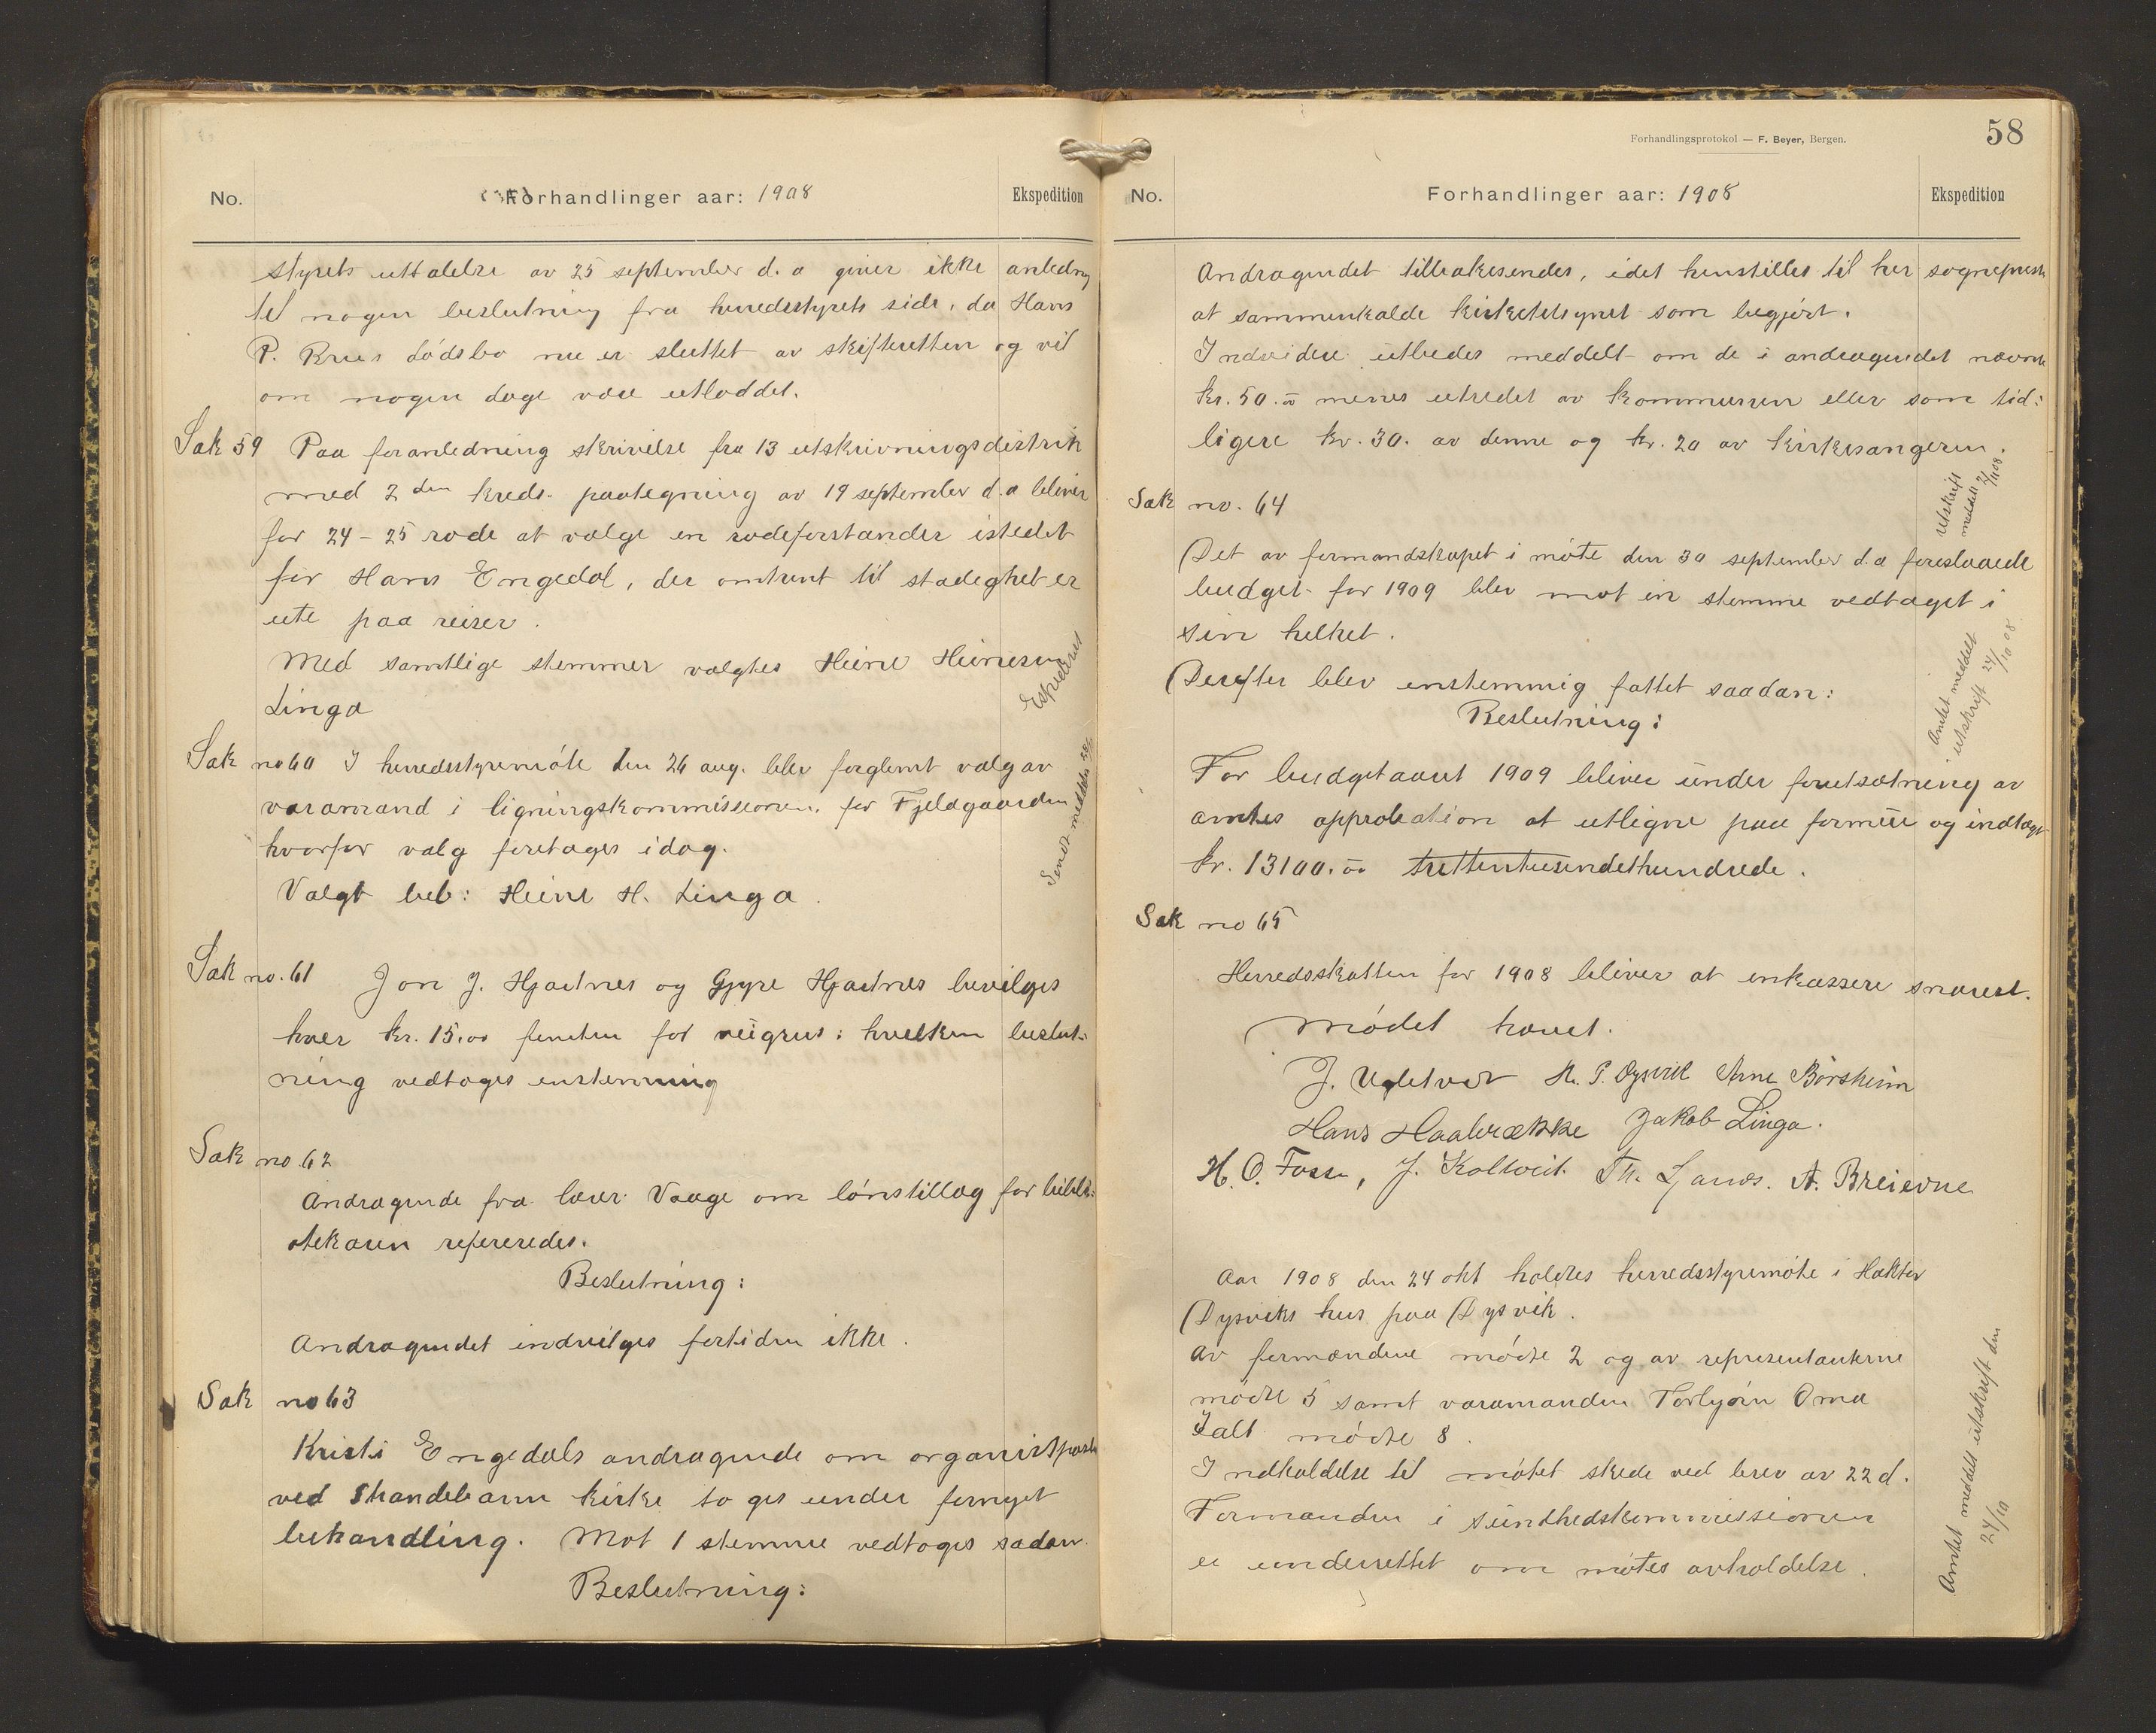 No. Forhandlinger aar: 1908 Ekspedition
styrets uttalelse av 25 september d. a giver ikke anledng
til nogen beslutning fra herredsstyrets side, da Hans
P. Krues dødsbo nu er sluttet av skifteretten og vil
om nogen dage være utloddet.
Sak 59 Paa foranledning skrivelse fra 13 utskrivningsdistrik
med 2den kreds. paategning av 19 september d.a bliver
for 24-25 rode at vælge en rodeforstander istedet
for Hans Engedal, der omtrent til stadeghet er
ute paa reiser.
Med samtlige stemmer valgtes Heine Heinesen
Linga
Ekspederet
Sak no 60 I herredsstyremøte den 26 aug. blev forglemt valg av
varamand i ligningskommissionen. for Fjeldgaarden
hvorfor valg foretages idag.
Valgt bleb: Heine H. Linga.
Sendt meddelse
Sak no. 61 Jon J. Hjartnes og Gyre Hjartnes bevilges
hver kr. 15.00 femten for veigrus: hvelken beslut:
ning vedtoges enstemmig
Sak no 62
Andragende fra lærer Vaage om lønstillæg for bibli:
otekaren refereredes.
Beslutning:
Andragendet indvilges fortiden ikke.
Sak no 63
Kristi Engedals andragende om organistpost
ved Shandebarm kirke to ges under fornyet
behandling. Mot 1 stemme vedtoges sadan
Beslutning:
Forhandlingsprotokol — F. Beyer, Bergen.
58
No. Forhandlinger aar: 1908 Ekspedition
Andragendet tilbakesendes, idet henstilles til her sogneprest
at sammenkalde kirketilsynet som begjørt.
Indvidere utbedes meddelt om de i andragendet nævnte
kr. 50.00 menes utredet av kommunen eller som tid:
ligere kr. 30. av denne og kr. 20 av kirkesangeren.
Utskrift
meddelt
Sak no. 64
Det av formandskapet i møte den 30 september d.a foreslaaede
budget for 1909 blev mot en stemme vedtaget i
sin helhet.
Derefter blev enstemmig fattet saadan:
Beslutning:
Amtet meddelt
utskrift 24/10 08
For budgetaaret 1909 bliver under forutsætning av
amtes approbation at utligne paa formue og indtægt
kr. 13100.00 trettentusendethundrede.
Sak no 65
Herredsskatten for 1908 bliver at enkassere snarest.
Mødet hævet.
J. Ugletveit H. P. Dysvik Arne Børsheim
Hans Haabrække Jakob Linga.
H. O. Fosse, J. Koltveit. Th. Ljanes. A. Breievne
Aar 1908 den 24 okt holdtes herredsstyremøte i Hektor
Dysviks hus paa Dysvik.
Av formændene mødte 2 og av representanterne
mødte 5 samt varamanden Torbjørn Oma
Ialt mødte 8.
Indkaldelse til møtet skede ved brev av 22 d.
Formanden i sundhedskommissionen
er underrettet om møtes avholdelse.
Amtet meddelt utskrift den
24/10